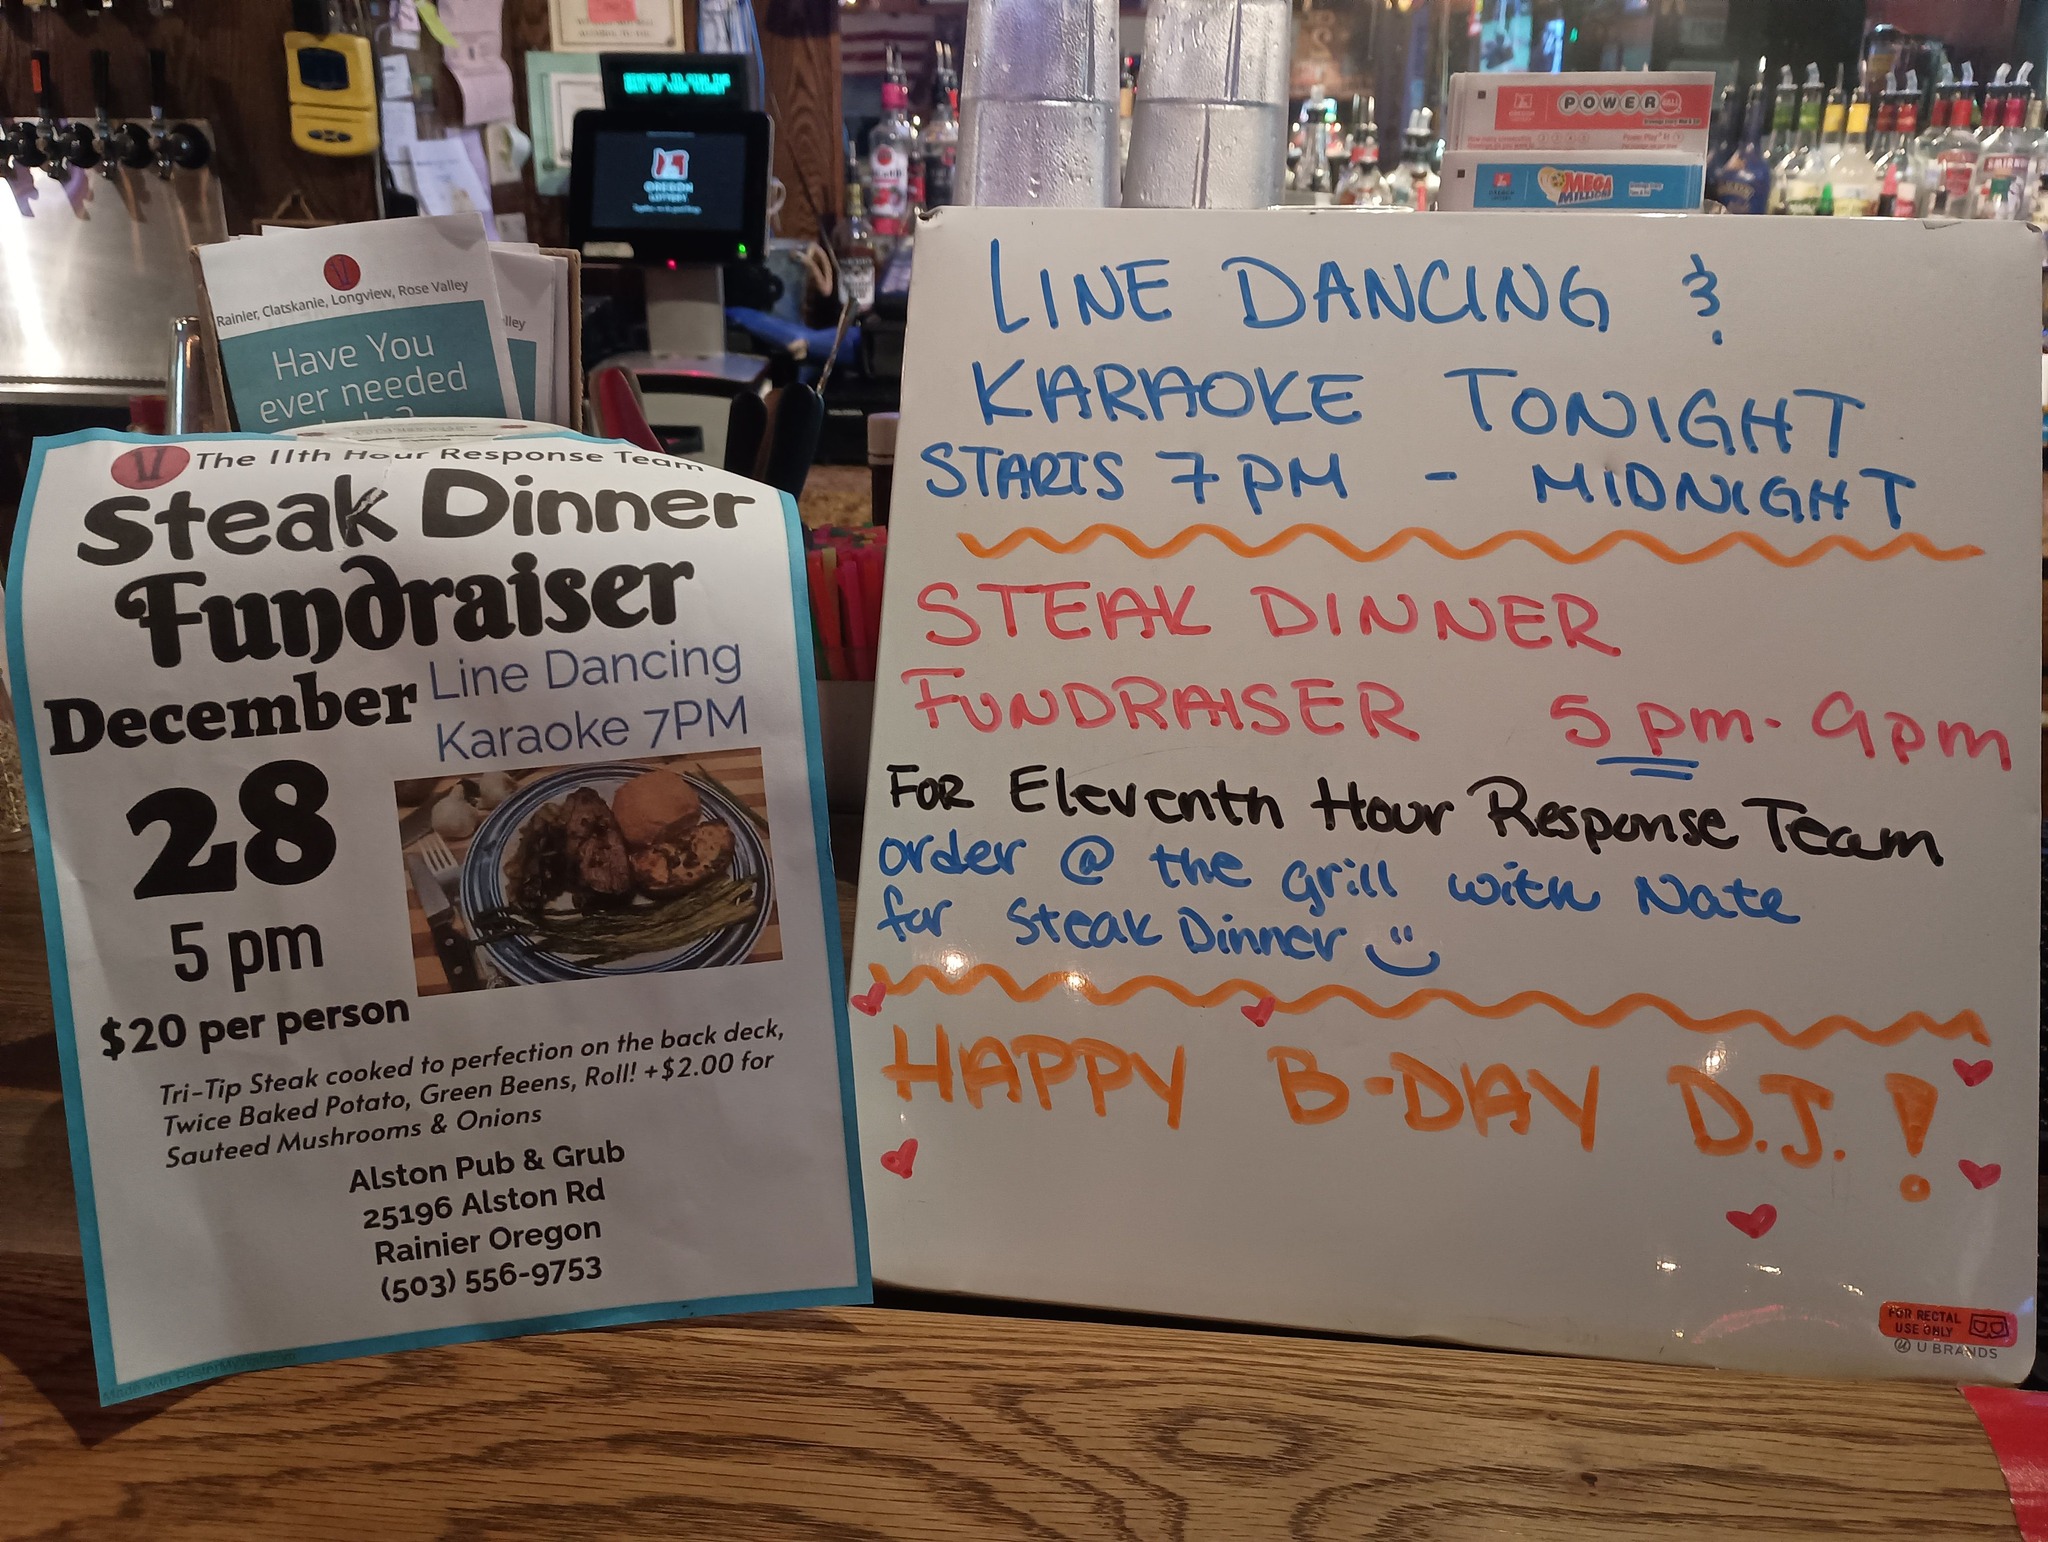 OREGON
LOTTERY
POWERBALL
MEGA
MILLIONS
SMIRNOFF
Rainier, Clatskanie, Longview, Rose Valley
Have You
ever needed
The 11th Hour Response Team
Steak Dinner
Fundraiser
December
28
5 pm
$20 per person
Line Dancing
Karaoke 7PM
Tri-Tip Steak cooked to perfection on the back deck,
Twice Baked Potato, Green Beens, Roll! +$2.00 for
Sauteed Mushrooms & Onions
Alston Pub & Grub
25196 Alston Rd
Rainier Oregon
(503) 556-9753
LINE DANCING &
KARAOKE TONIGHT
STARTS 7PM - MIDNIGHT
STEAK DINNER
FUNDRAISER 5pm-9pm
FOR Eleventh Hour Response Team
order @ the grill with Nate
for Steak Dinner
HAPPY B-DAY D.J.!
FOR RECTAL
USE ONLY
U BRANDS